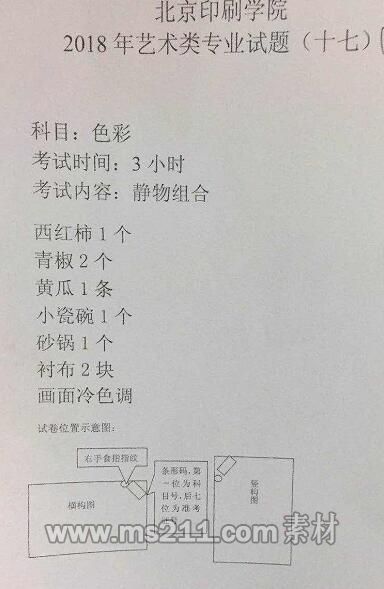 北京印刷学院
2018 年艺术类专业试题（十七）
科目：色彩
考试时间：3 小时
考试内容：静物组合
西红柿 1 个
青椒 2 个
黄瓜 1 条
小瓷碗 1 个
砂锅 1 个
衬布 2 块
画面冷色调
试卷位置示意图：
右手食指指纹
条形码，第
一位为科
目号，后七
位为准考
横构图
竖构图
www.ms211.com 素材